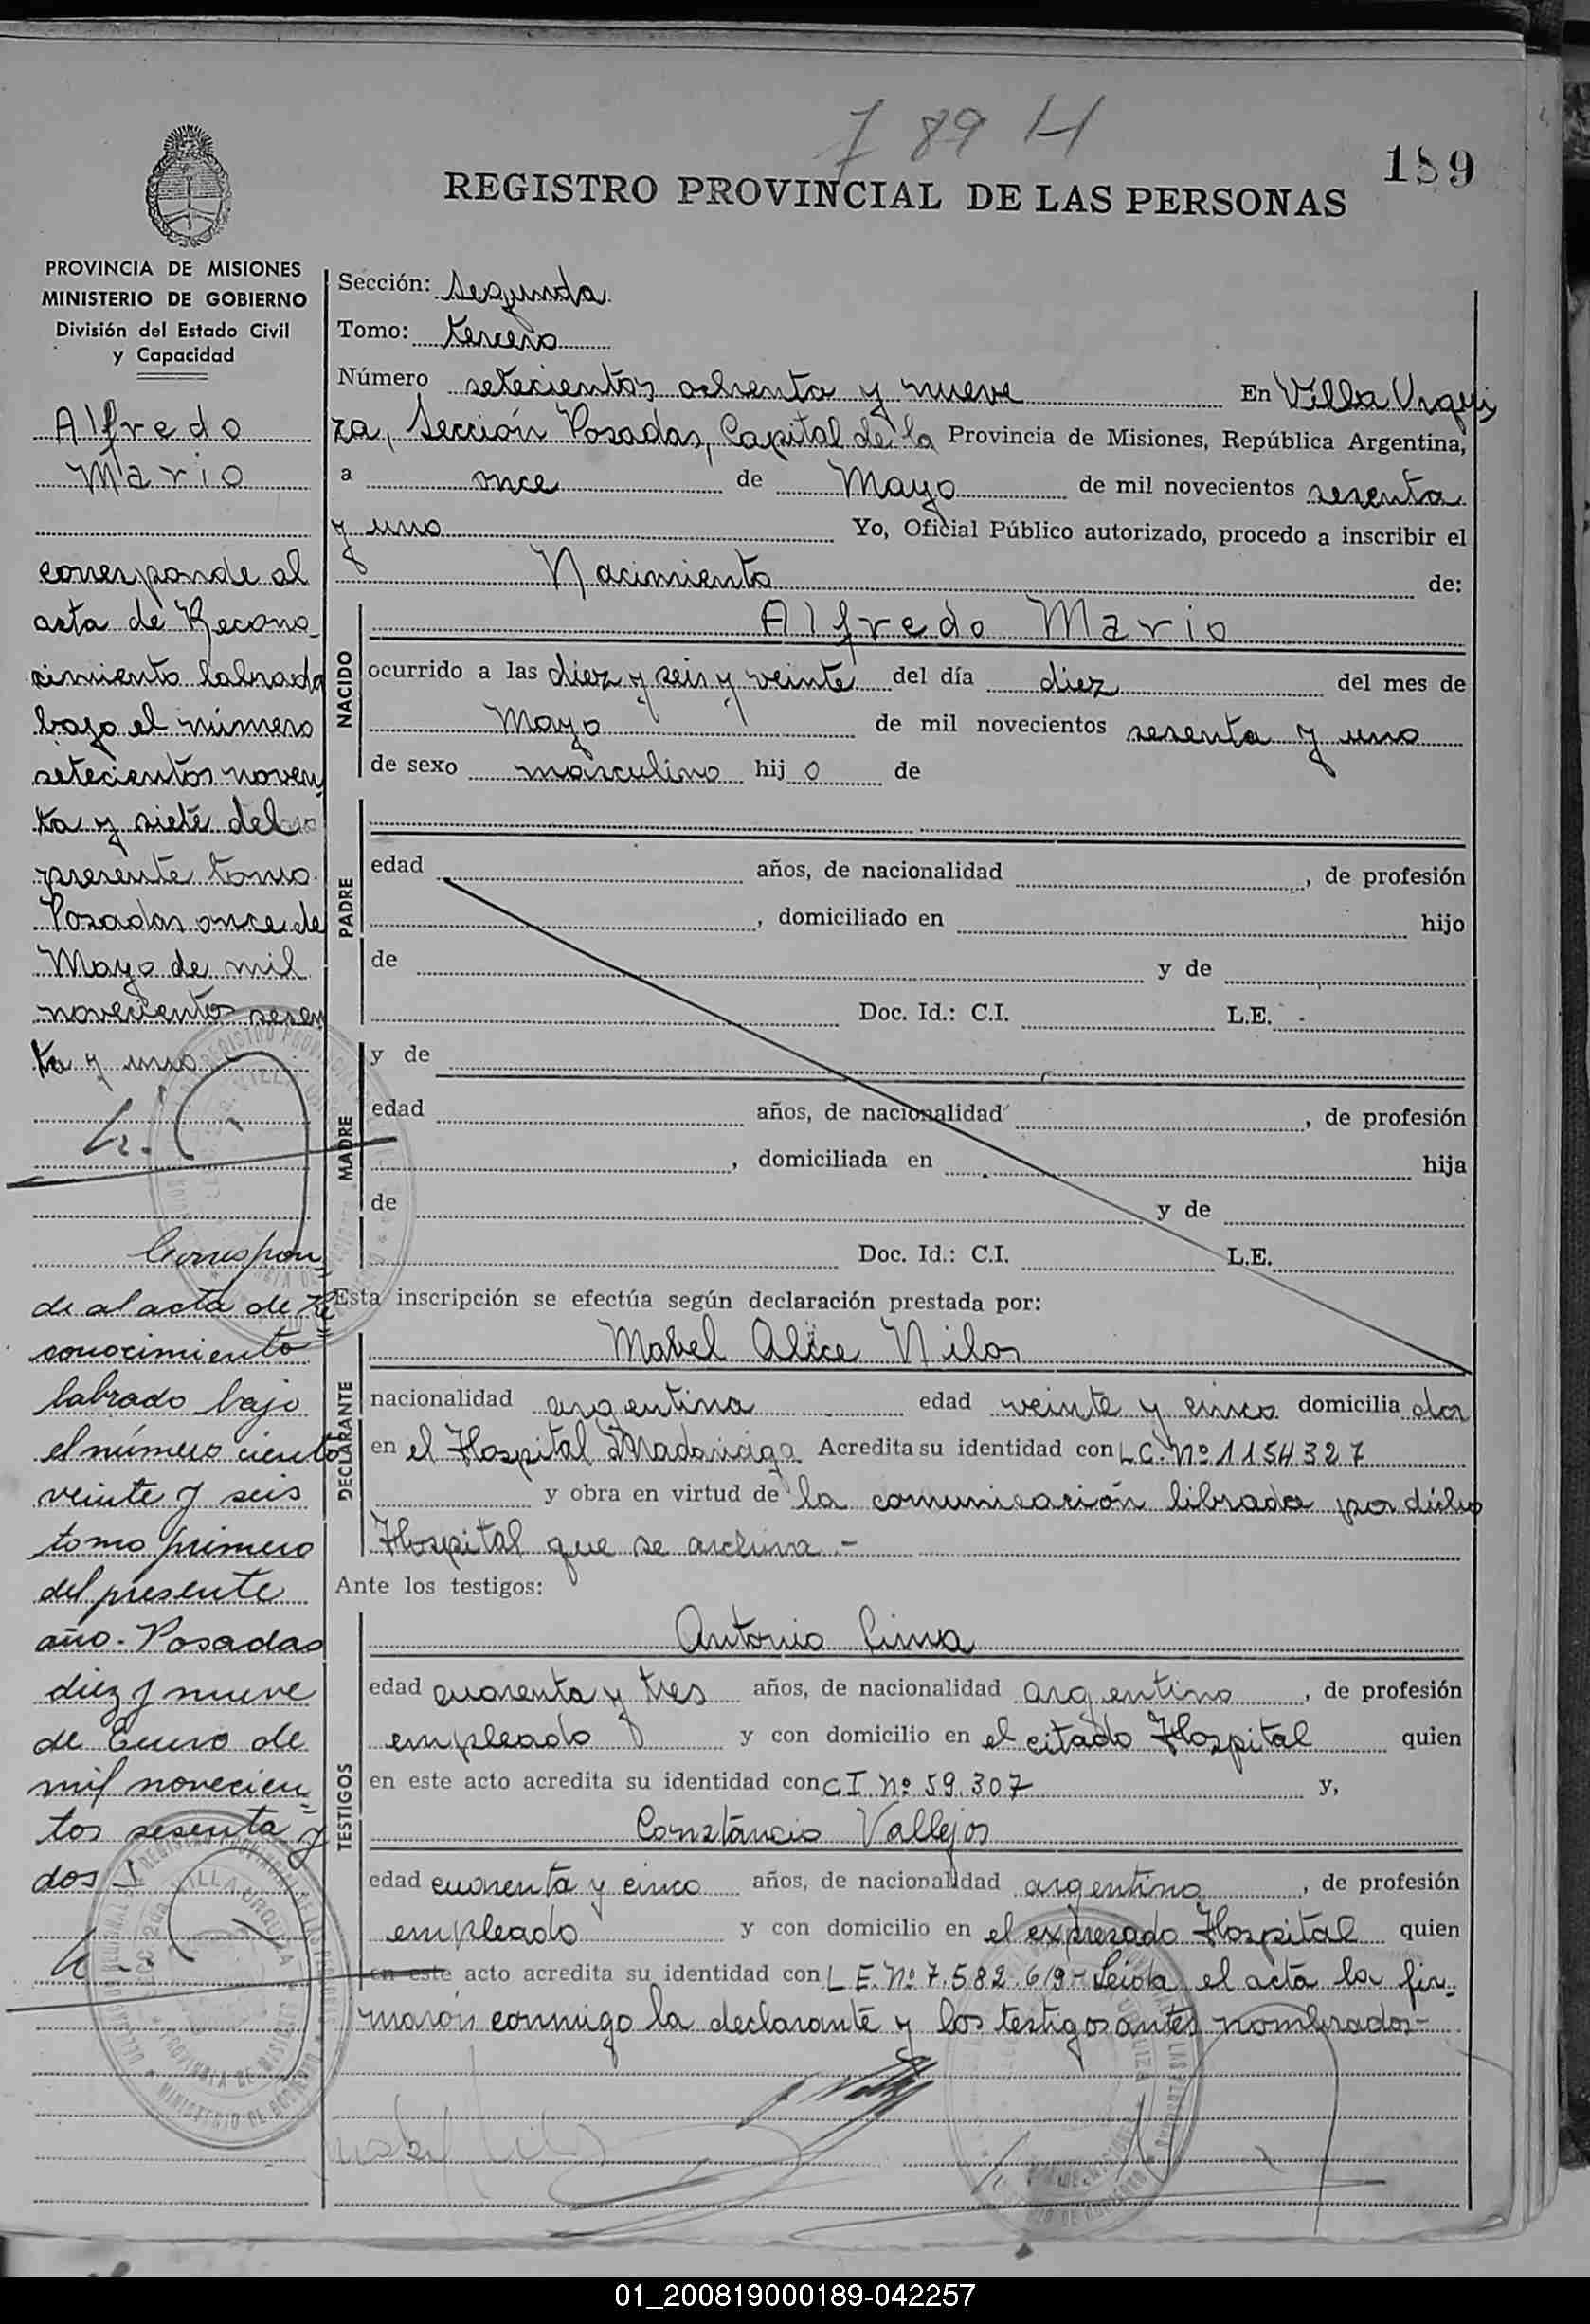 789 H
189
REGISTRO PROVINCIAL DE LAS PERSONAS
PROVINCIA DE MISIONES
MINISTERIO DE GOBIERNO
División del Estado Civil
y Capacidad
Alfredo
Mario
corresponde al
acta de Recono_
cimiento labrada
bajo el número
setecientos noven
ta y siete del
presente tomo.
Posadas once de
Mayo de mil
novecientos sesen
ta y uno
Correspon=
de al acta de Re=
conocimiento
labrado bajo
el número ciento
veinte y seis
tomo primero
del presente
año. Posadas
diez y nueve
de Enero de
mil novecien=
tos sesenta y
dos
Sección: Segunda
Tomo: tercero
Número setecientos ochenta y nueve En Villa Urqui
za, Sección Posadas, Capital de la Provincia de Misiones, República Argentina,
a once de Mayo de mil novecientos sesenta
y uno Yo, Oficial Público autorizado, procedo a inscribir el
Nacimiento de:
NACIDO
Alfredo Mario
ocurrido a las diez y seis y veinte del día diez del mes de
Mayo de mil novecientos sesenta y uno
de sexo masculino hij o de
PADRE
edad años, de nacionalidad , de profesión
, domiciliado en hijo
de y de
Doc. Id.: C.I. L.E.
MADRE
y de
edad años, de nacionalidad , de profesión
, domiciliada en hija
de y de
Doc. Id.: C.I. L.E.
Esta inscripción se efectúa según declaración prestada por:
DECLARANTE
Mabel Alice Nilos
nacionalidad argentina edad veinte y cinco domicilia da
en el Hospital Madariaga Acredita su identidad con L.C. Nº 1154327
y obra en virtud de la comunicación librada por dicho
Hospital que se archiva.-
Ante los testigos:
TESTIGOS
Antonio Cima
edad cuarenta y tres años, de nacionalidad argentino, de profesión
empleado y con domicilio en el citado Hospital quien
en este acto acredita su identidad con C I. Nº 59.307 y,
Constancio Vallejos
edad cuarenta y cinco años, de nacionalidad argentino, de profesión
empleado y con domicilio en el expresado Hospital quien
en este acto acredita su identidad con L E. Nº 7.582.619- Leída el acta la fir_
marón conmigo la declarante y los testigos antes nombrados-
01_200819000189-042257